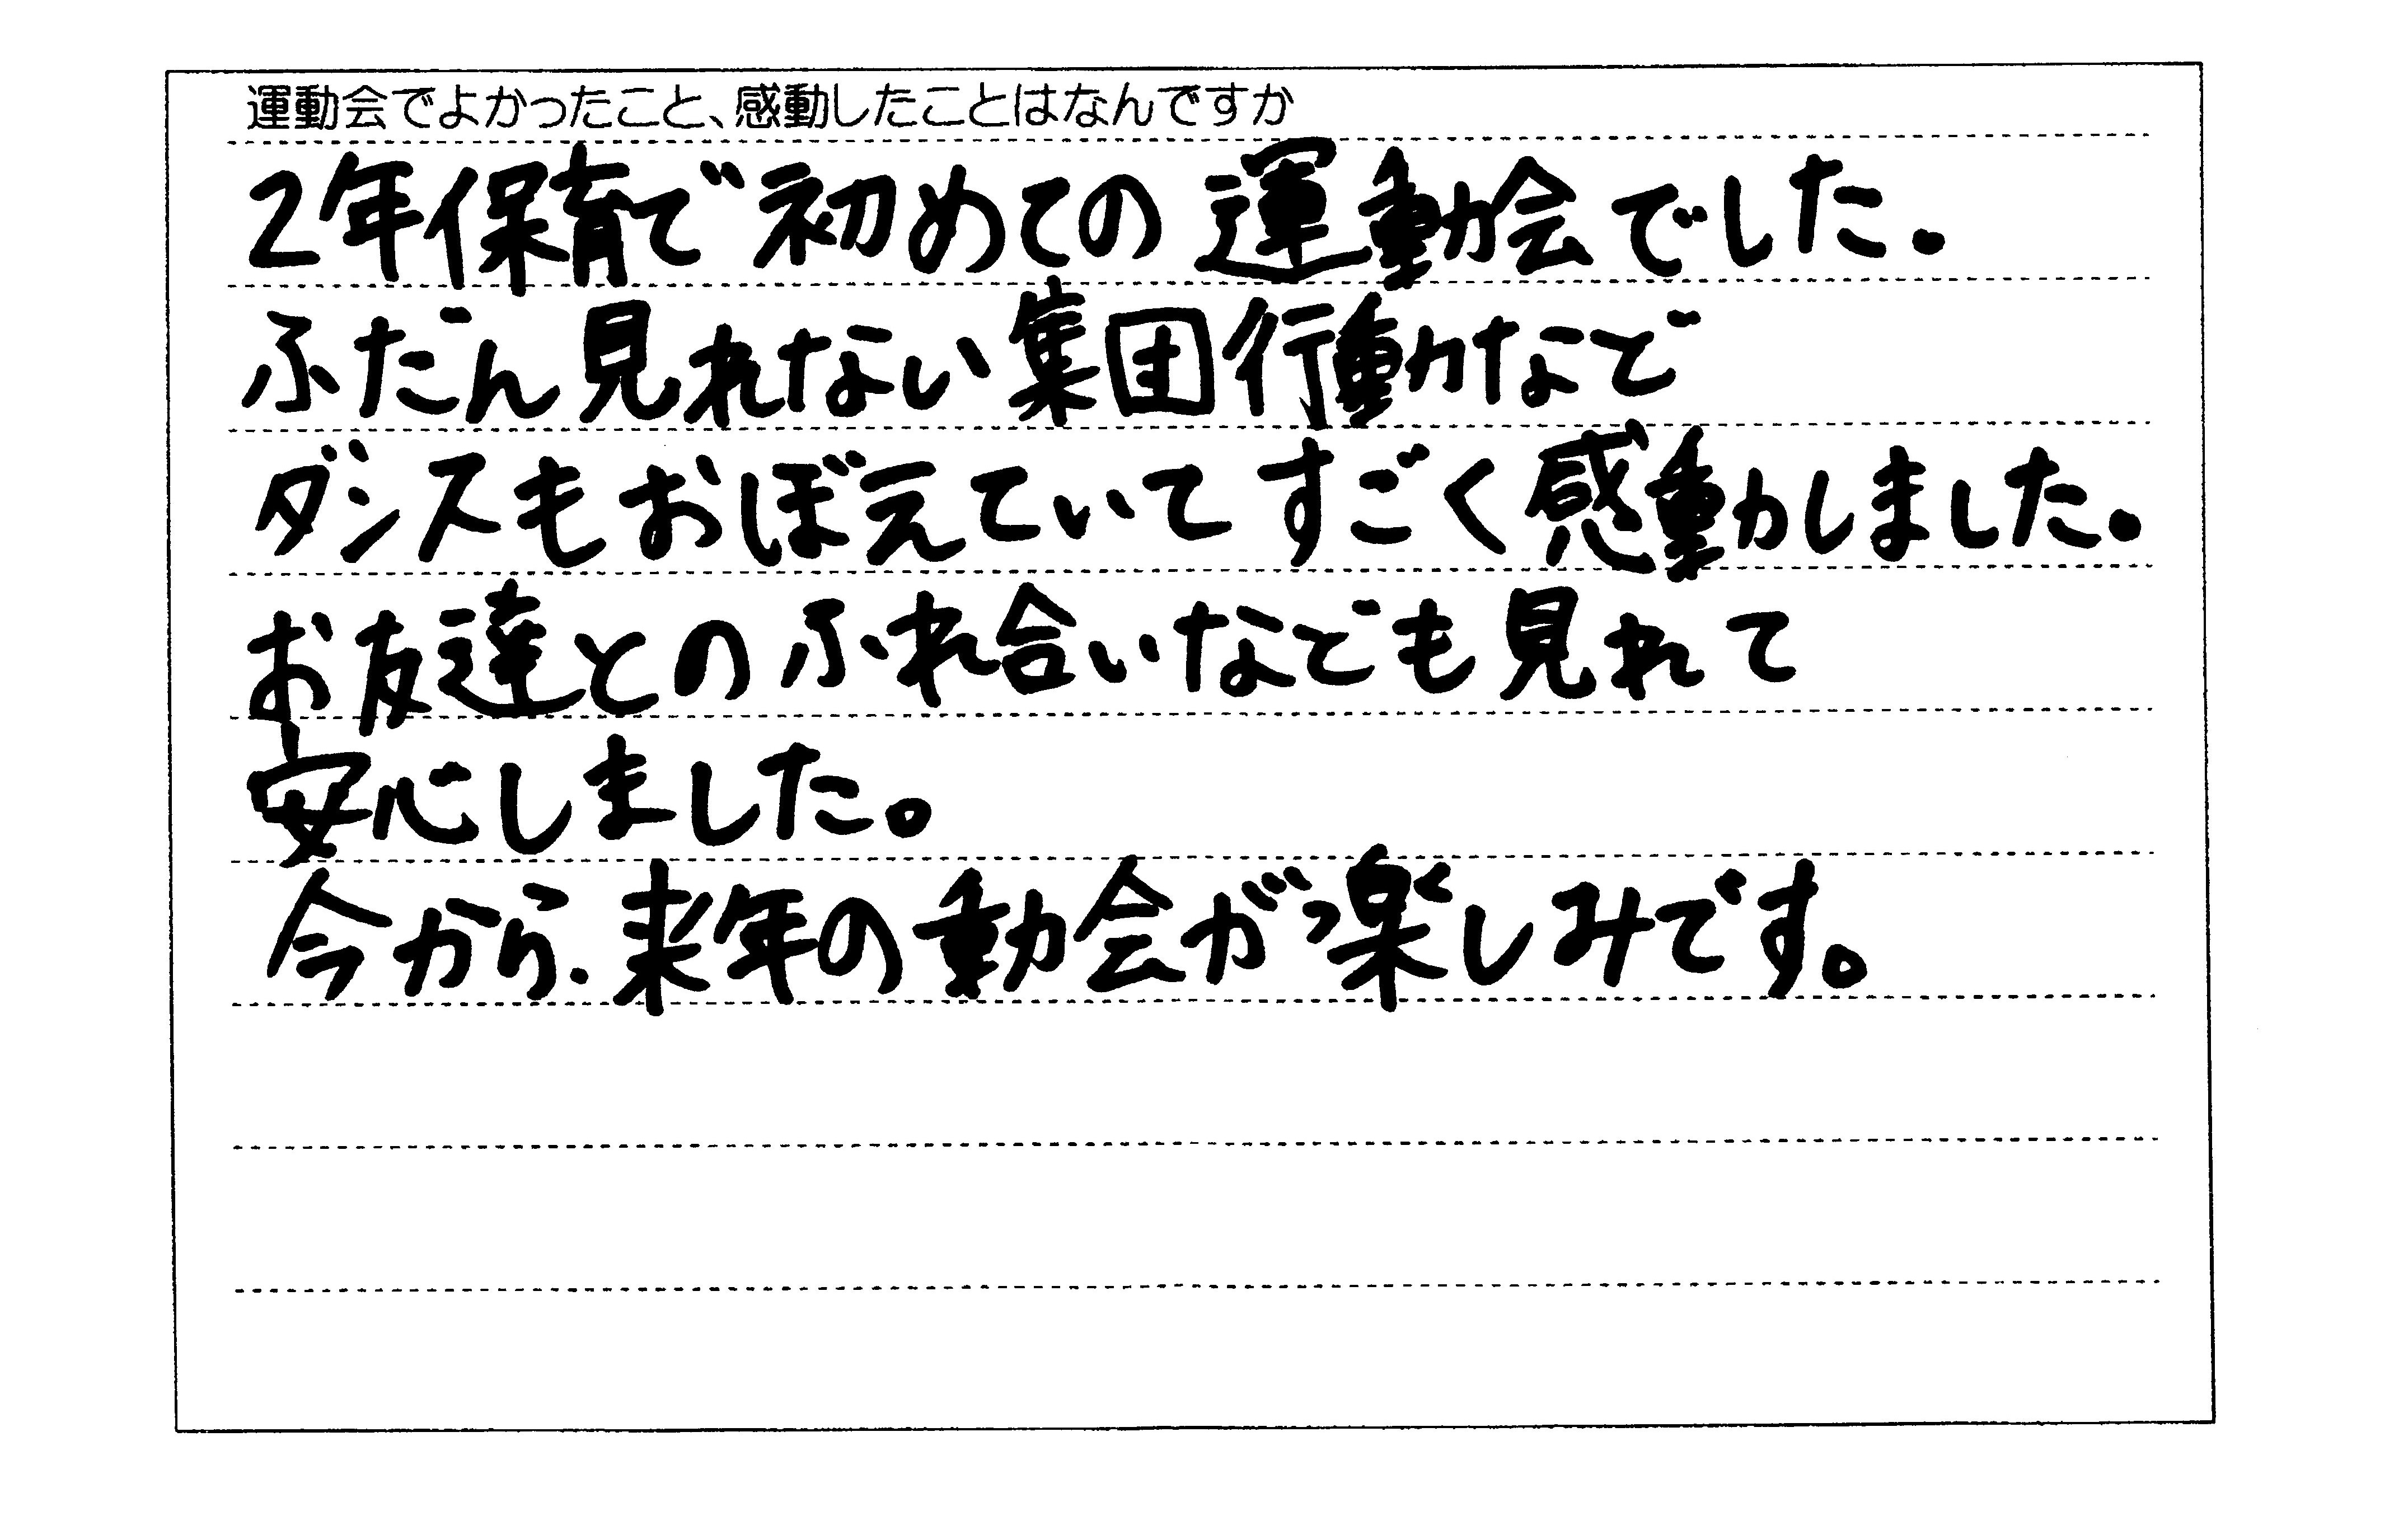 運動会でよかったこと、感動したことはなんですか
2年保育で初めての運動会でした.
ふだん見れない集団行動など
ダンスもおぼえていてすごく感動しました.
お友達とのふれ合いなども見れて
安心しました。
今から.来年の動会が楽しみです。